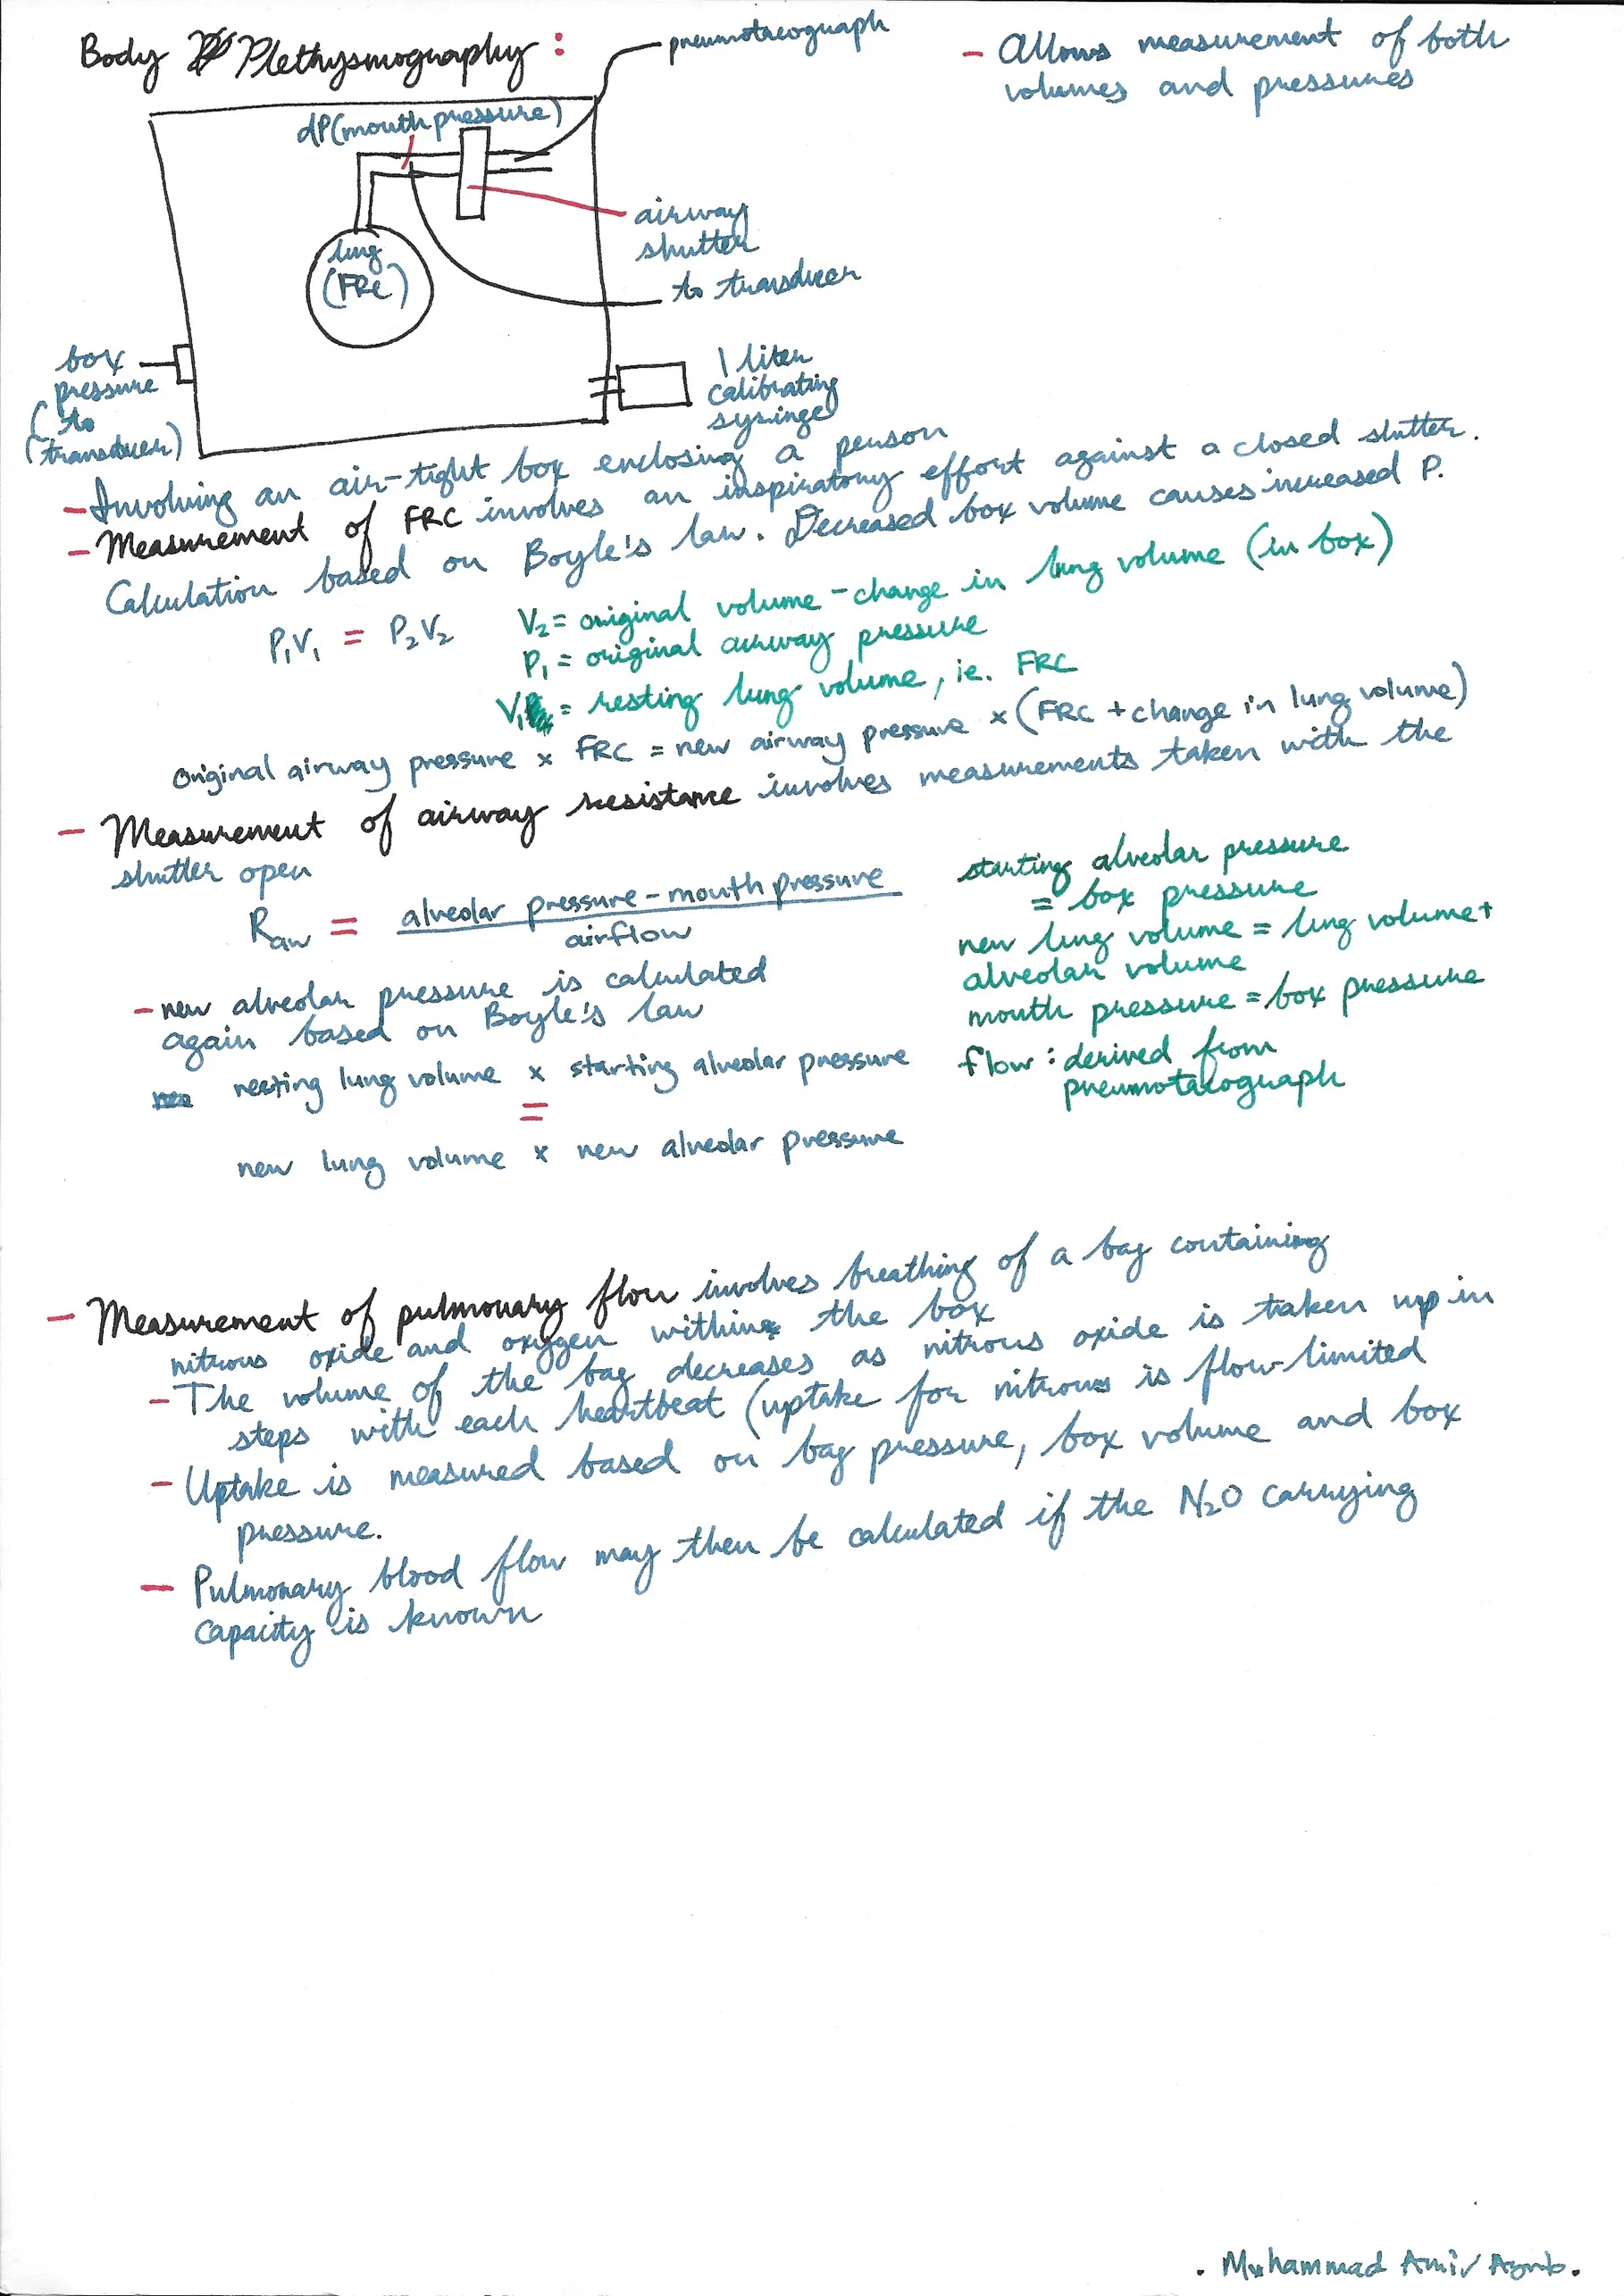 Body Plethysmography:
pneumotacograph
- Allows measurement of both
volumes and pressures
dP(mouth pressure)
airway
shutter
lung
(FRC)
to transducer
box
pressure
(to
transducer)
1 liter
calibrating
syringe
- Involving an air-tight box enclosing a person
- Measurement of FRC involves an inspiratory effort against a closed shutter.
Calculation based on Boyle's law. Decreased box volume causes increased P.
P₁V₁ = P₂V₂
V₂ = original volume - change in lung volume (in box)
P₁ = original airway pressure
V₁ = resting lung volume, ie. FRC
Original airway pressure x FRC = new airway pressure x (FRC + change in lung volume)
- Measurement of airway resistance involves measurements taken with the
shutter open
Raw = alveolar pressure - mouth pressure
airflow
starting alveolar pressure
= box pressure
new lung volume = lung volume +
alveolar volume
mouth pressure = box pressure
flow: derived from
pneumotacograph
- new alveolar pressure is calculated
again based on Boyle's law
resting lung volume x starting alveolar pressure
=
new lung volume x new alveolar pressure
- Measurement of pulmonary flow involves breathing of a bag containing
nitrous oxide and oxygen within the box
- The volume of the bag decreases as nitrous oxide is taken up in
steps with each heartbeat (uptake for nitrous is flow-limited
- Uptake is measured based on bag pressure, box volume and box
pressure.
- Pulmonary blood flow may then be calculated if the N₂O carrying
capacity is known
. Muhammad Amir